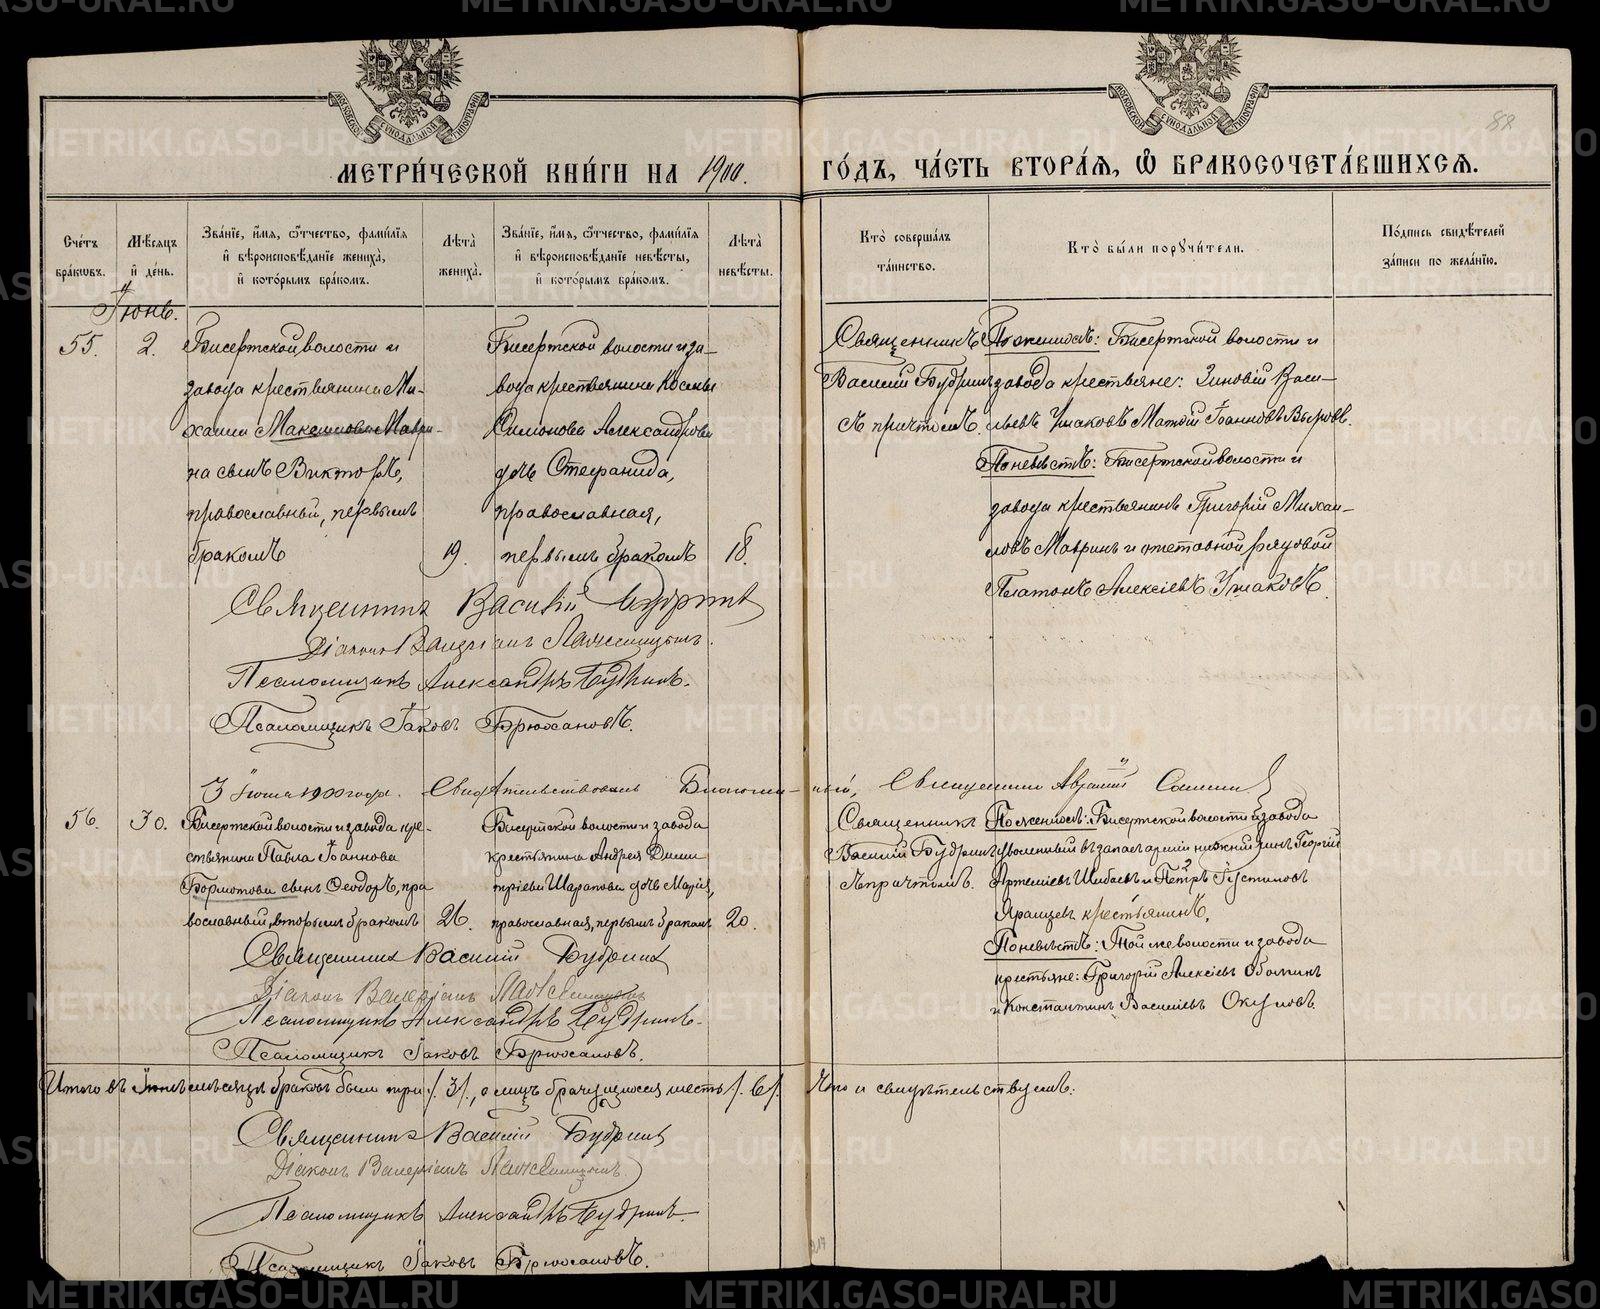 METRIKI.GASO-URAL.RU
МОСКОВСКОЙ СѴНОДАЛЬНОЙ ТИПОГРАФІИ
МОСКОВСКОЙ СѴНОДАЛЬНОЙ ТИПОГРАФІИ
88
МЕТРИ́ЧЕСКОЙ КНИ́ГИ НА 1900.
ГО́ДЪ, ЧА́СТЬ ВТОРА́Ѧ, Ѽ БРАКОСОЧЕТА́ВШИХСѦ.
Сче́тъ бра́кѡвъ.
Мѣ́сѧцъ и҆ де́нь.
Зва́нїе, и҆́мѧ, ѻ҆́тчество, фами́лїѧ и҆ вѣроисповѣ́данїе жениха̀, и҆ кото́рымъ бра́комъ.
Лѣ́та̀ жениха̀.
Зва́нїе, и҆́мѧ, ѻ҆́тчество, фами́лїѧ и҆ вѣроисповѣ́данїе невѣ́сты, и҆ кото́рымъ бра́комъ.
Лѣ́та̀ невѣ́сты.
Кто̀ соверша́лъ та́инство.
Кто̀ бы́ли порꙋчи́тели.
По́дпись свидѣ́телей за́писи по жела́нїю.
Іюнь.
55.
2.
Бисертской волости и
завода крестьянина Ми-
хаила Максимова Маври-
на сынъ Викторъ,
православный, первымъ
бракомъ
19.
Бисертской волости и за-
вода крестьянина Космы
Симонова Александрова
дочь Стефанида,
православная,
первымъ бракомъ
18.
Священникъ
Василій Будринъ
съ причтомъ.
По женихѣ: Бисертской волости и
завода крестьяне: Зиновій Васи-
льевъ Ушаковъ Матѳій Іоанновъ Выровъ.
По невѣстѣ: Бисертской волости и
завода крестьянинъ Григорій Михаи-
ловъ Мавринъ и отставной рядовой
Платонъ Алексіевъ Ушаковъ.
Священникъ Василій Будринъ
Діаконъ Валеріанъ
Псаломщикъ Александръ Будринъ.
Псаломщикъ Іаковъ Брюхановъ.
3 Іюня 1900 года. Свидѣтельствовалъ Благочин-ный, Священникъ Авраамій
56.
30.
Бисертской волости и завода кре-
стьянина Павла Іоаннова
Бормотова сынъ Ѳеодоръ, пра
вославный, вторымъ бракомъ
26.
Бисертской волости и завода
крестьянина Андрея Дими
тріева Шарапова дочь Марія,
православная, первымъ бракомъ
20.
Священникъ
Василій Будринъ
съ причтомъ.
По женихѣ: Бисертской волости и завода
уволенный въ запасъ арміи нижній чинъ Георгій
Артеміевъ Шибаевъ и Петръ Іустиновъ
Яранцевъ крестьянинъ.
По невѣстѣ: Той же волости и завода
крестьяне: Григорій Алексіевъ
и Константинъ Василіевъ Окуловъ
Священникъ Василій Будринъ
Діаконъ Валеріанъ
Псаломщикъ Александръ Будринъ.
Псаломщикъ Іаковъ Брюхановъ.
Итого въ Іюнѣ мѣсяцѣ браковъ было три /3/, а лицъ брачущихся шесть /6/. Что и свидѣтельствуемъ:
Священникъ Василій Будринъ
Діаконъ Валеріанъ
Псаломщикъ Александръ Будринъ.
Псаломщикъ Іаковъ Брюхановъ.